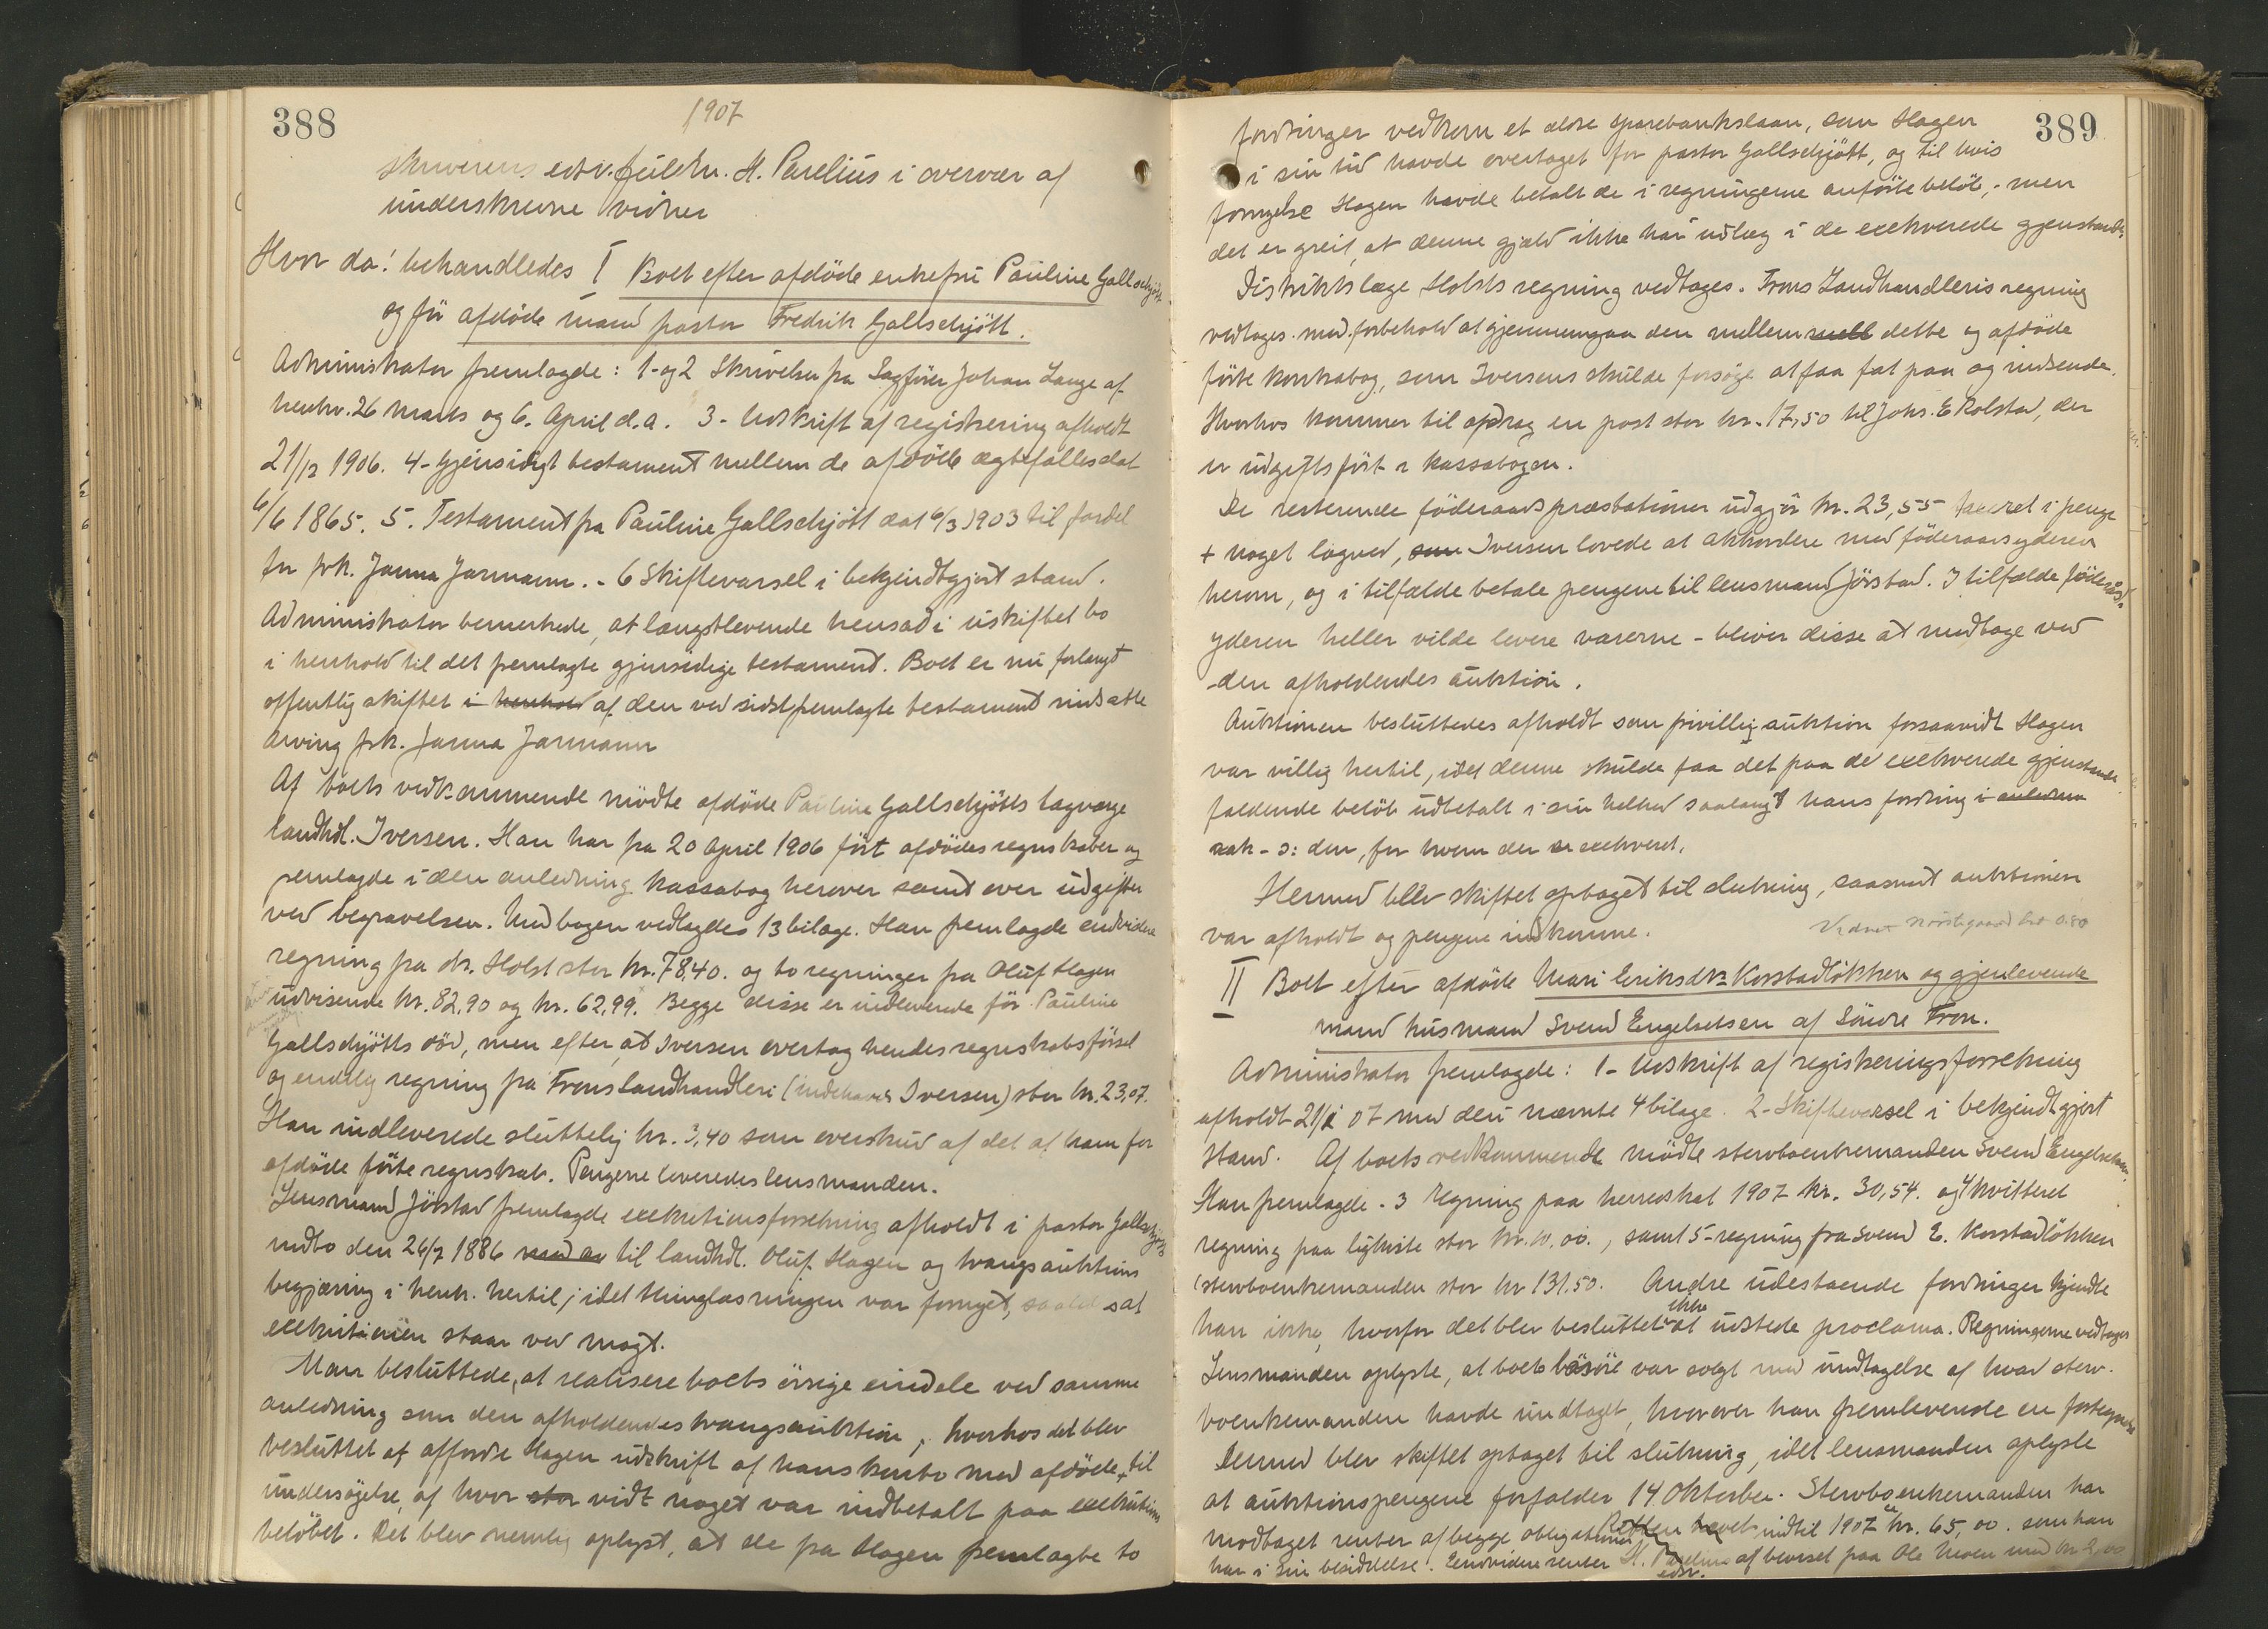 388
1907
skriverens edsv. fuldm. H. Parelius i overvær af
underskrevne vidner
Hvor da! behandledes I Boet efter afdöde enkefru Pauline Gallschjött
og för afdöde mand pastor Fredrik Gallschjött.
Administrator fremlagde: 1- og 2 Skrivelser fra Sagförer Johan Lange af
henhv. 26 marts og 6. April d.a. 3- Udskrift af registrering afholdt
21/12 1906. 4- Gjensidigt testament mellem de afdöde ægtefolk dat
6/6 1865. 5. Testament fra Pauline Gallschjött dat 6/3 1903 til fordel
for frk. Janna Jarmann. - 6 Skiftevarsel i bekjendtgjort stand.
Administrator bemerkede, at længstlevende hensad i uskiftet bo
i henhold til det fremlagte gjensidige testament. Boet er nu forlangt
offentlig skiftet i henhold af den ved sidst fremlagte testament indsatte
arving frk. Janna Jarmann
Af boets vedkommende mödte afdöde Pauline Gallschjötts lagverge
landhdl. Iversen. Han har fra 20 April 1906 fört afdödes regnskaber og
fremlagde i den anledning kassabog herover samt over udgifter
ved begravelsen. Med bogen vedlagdes 13 bilage. Han fremlagde endvidere
regning fra dr. Holst stor kr. 78,40. og to regninger fra Oluf Hagen
udvisende kr. 82,90 og kr. 62,99. Begge disse er indleverede för Pauline
Gallschjötts död, men efter at Iversen overtog hendes regnskabsförsel
og endelig regning fra Frons Landhandleri (indehaver Iversen) stor kr. 23,07.
Han indleverede sluttelig kr. 3,40 som overskud af det af ham for
afdöde förte regnskab. Pengene leveredes lensmanden.
Lensmand Jörstad fremlagde exekutionsforretning afholdt i pastor Gallschjötts
indbo den 26/7 1886 med av til landhdl. Oluf Hagen og tvangsauktions
begjæring i henh. hertil; idet thinglæsningen var fornyet, saaledes at
exekutionen staar ved magt.
Man besluttede, at realisere boets övrige eiendele ved samme
anledning som den afholdendes tvangsauktion, hvorhos det blev
besluttet at affordre Hagen udskrift af hans konto med afdöde, til
undersögelse af hvor stor vidt noget var indbetalt paa exekutions
belöbet. Det blev nemlig oplyst, at de fra Hagen fremlagte to
389
fordringer vedkom et ældre sparebankslaan, som Hagen
i sin tid havde overtaget for pastor Gallschjött, og til hvis
fornyelse Hagen havde betalt de i regningerne anförte belöb, - men
det er greit, at denne gjæld ikke har udlæg i de exekverede gjenstande.
Distriktslæge Holsts regning vedtages. Frons Landhandleris regning
vedtages med forbehold at gjennemgaa den mellem mell dette og afdöde
förte kontrabog, som Iversens skulde forsöge at faa fat paa og indsende.
Hvorhos kommer til afdrag en post stor kr. 17,50 til Johs. E Kolstad, der
er udgiftsfört i kassabogen.
De resterende föderaadspræstationer udgjör kr. 23,55 i penge
+ noget lagved, som Iversen lovede at akkordere med föderaadsyderen
herom, og i tilfælde betale pengene til lensmand Jörstad. I tilfælde föderaads
yderen heller vilde levere varerne - bliver disse at medtage ved
den afholdendes auktion.
Auktionen besluttedes afholdt som frivillig auktion forsaavidt Hagen
var villig hertil, idet denne skulde faa det paa de exekverede gjenstande
faldende belöb udbetalt i sin helhed saalangt hans fordring i anledn
rak - ɔ: den, for hvem der er exekveret.
Hermed blev skiftet optaget til slutning, saasnart auktionen
var afholdt og pengene indkomne.
II Boet efter afdöde Mari Eriksdtr Korstadlökken og gjenlevende
mand husmand Svend Engebretsen af Söndre Fron.
Administrator fremlagde: 1- Udskrift af registreringsforretning
afholdt 21/1 07 med deri nævnte 4 bilage. 2- Skiftevarsel i bekjendtgjort
stand. Af boets vedkommende mödte stervboenkemanden Svend Engebretsen.
Han fremlagde - 3 Regning paa herredskat 1907 kr. 30,54. og 4 kvitteret
regning paa ligkiste stor kr. 10,00., samt 5- regning fra Svend E. Korstadlökken
(stervboenkemanden stor kr 131.50. Andre udestaaende fordringer kjendte
han ikke, hvorfor det blev besluttet ikke at udstede proclama. Regningerne vedtages
Lensmanden oplyste, at boets lösöre var solgt med undtagelse af hvad sterv-
boenkemanden havde undtaget, hvorover han fremleverede en fortegnelse
Dermed blev skiftet optaget til slutning, idet lensmanden oplyste
at auktionspengene forfalder 14 Oktober. Stervboenkemanden har
modtaget renter af begge obligationer indtil 1907 kr. 65,00. som han
Retten hævet
har i sin besiddelse. Endvidere renter af beviset paa Ole Moen med kr 2,00
H. Parelius
edsv.